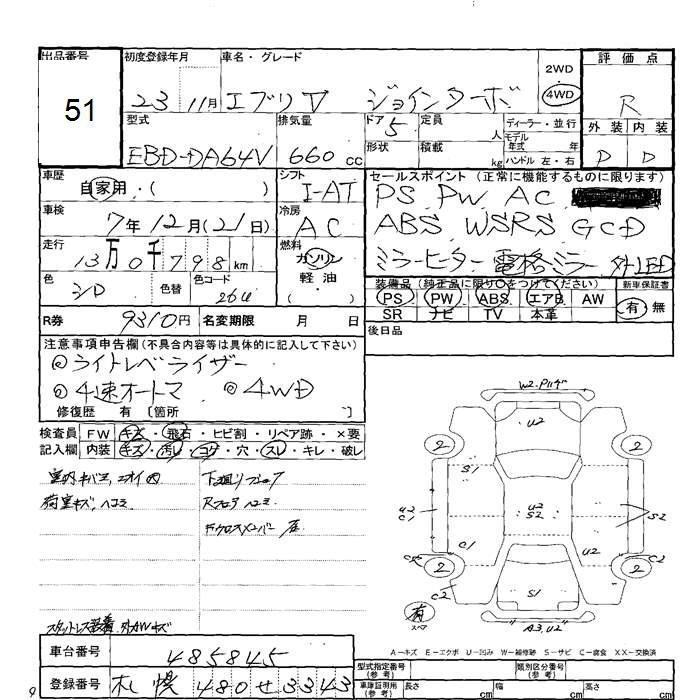 出品番号
51
初度登録年月
23 11月
車名・グレード
エブリV ジョインターボ
2WD
4WD
評価点
R
外装 内装
D D
型式
EBD-DA64V
排気量
660 cc
ドア 5
形状
定員 人
積載 kg
ディーラー・並行
モデル年式 年
ハンドル 左・右
車歴
自家用・( )
シフト
I-AT
セールスポイント (正常に機能するものに限ります)
PS PW AC
ABS WSRS GCD
ミラーヒーター 電格ミラー 外LED
車検
7年12月(21日)
冷房
AC
走行
13万0千798km
燃料
ガソリン
軽・油
( )
色
色替
色コード
26U
装備品(純正品に限り○をつけてください)
PS PW ABS エアB AW
SR ナビ TV 本革
新車保証書
有・無
R券 9310円
名変期限 月 日
後日品
注意事項申告欄(不具合内容等は具体的に記入して下さい)
◎ライトレベライザー
◎4速オートマ ◎4WD
修復歴 有 〔箇所 〕
検査員記入欄
FW キズ・飛石・ヒビ割・リペア跡・×要
内装 キズ・汚レ・コゲ・穴・スレ・キレ・破レ
荷室キズ,ヘコミ
Rフロアヘコミ
W2.P
U2
2 2
S1
U2
C1
U2
S2
S2
C1
U2
2 2
C2 C2
S1
有
A3.U2
A−キズ E−エクボ U−凹み W−補修跡 S−サビ C−腐食 XX−交換済
車台番号 485845
登録番号 札幌 480 せ 3343
型式指定番号(参考)
類別区分番号(参考)
車庫証明用(参考)
長さ cm
幅 cm
高さ cm